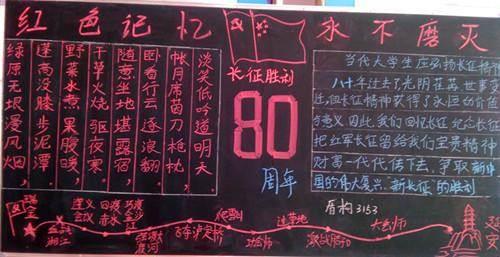 红色记忆 永不磨灭
绿原无垠漫风烟,
蓬高没膝步泥潭。
野菜水煮果腹暖,
干草火烧驱夜寒。
随意坐地堪露宿,
卧看行云逐浪翻。
帐月席茵刀枪枕,
淡笑低吟道明天。
长征胜利
80
周年
当代大学生应弘扬长征精神
八十年过去了,光阴荏苒,世事变
迁,但长征精神获得了永恒的价值
与意义.因此,我们回忆长征,纪念长征
把红军长征留给我们宝贵精神
财富一代代传下去,争取新中
国的伟大复兴,新长征的胜利
盾构3153
瑞金
血战湘江
遵义会议
四渡赤水
巧渡金沙江
强渡大渡河
飞夺泸定桥
爬雪山
会师
过草地
激战腊子口
大会师
延安